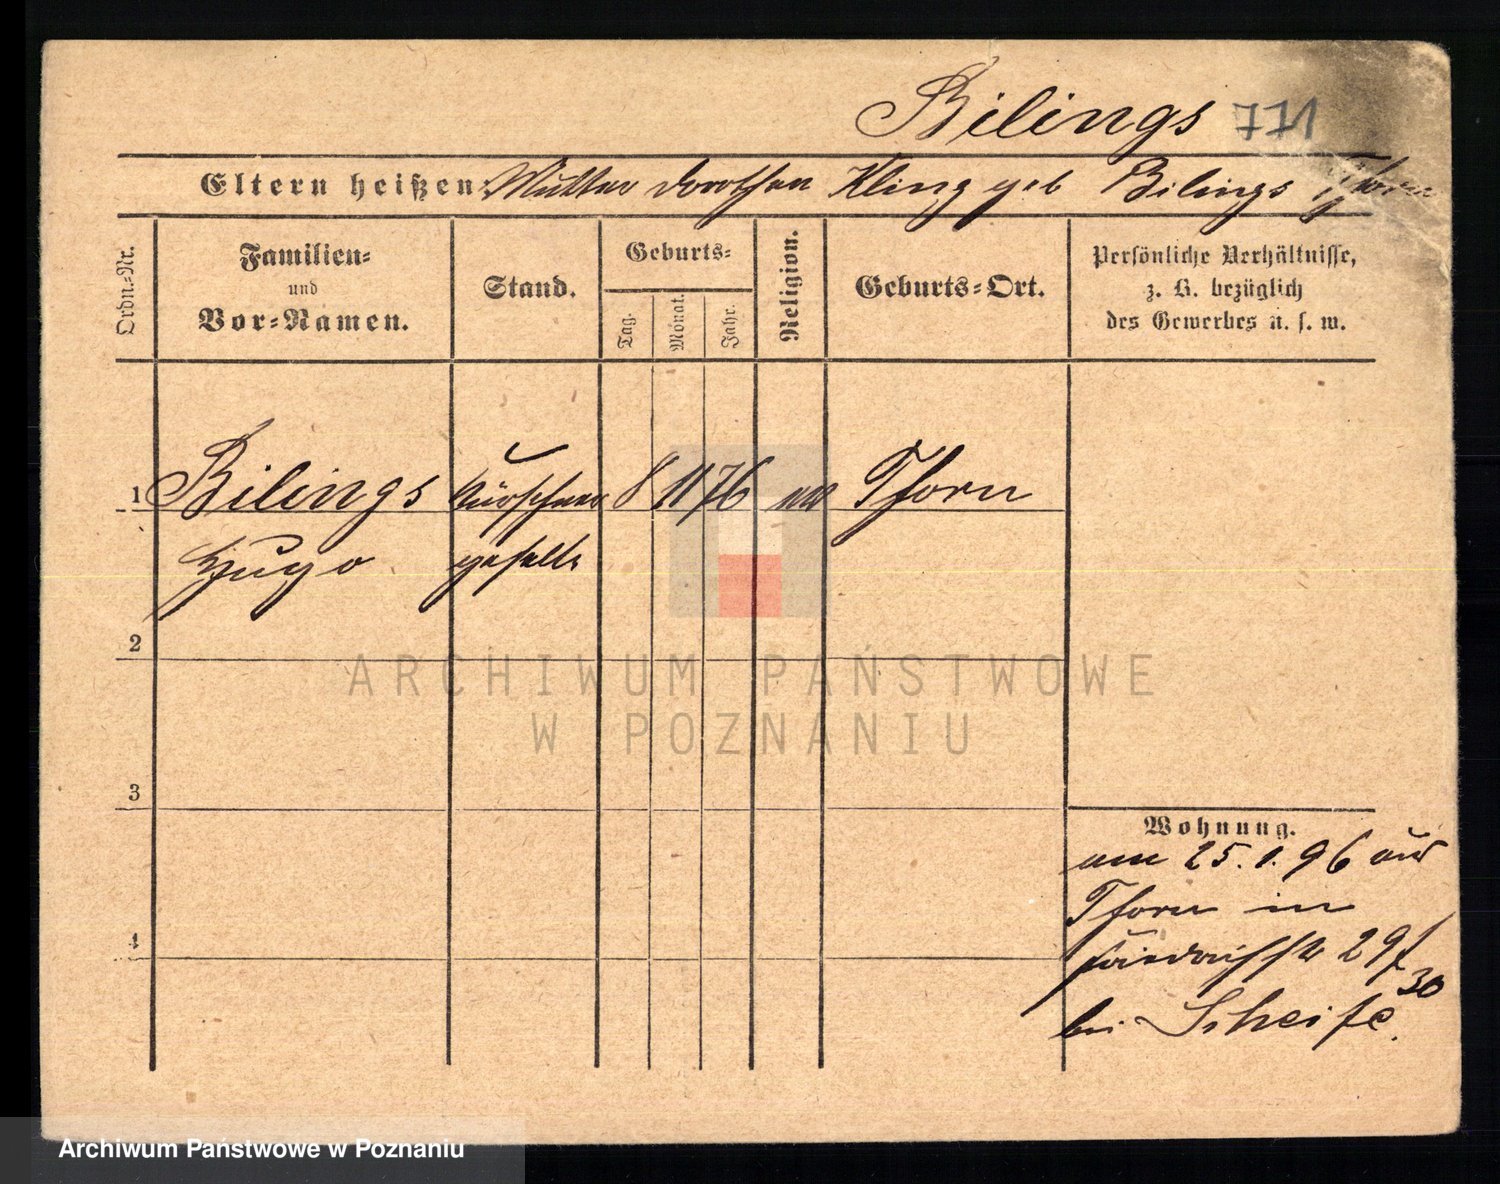 Bilings 771
Eltern heißen: Mutter Dorothea Kling geb Bilings Thorn
Ordn.-Nr.
Familien-
und
Vor-Namen.
Stand.
Geburts-
Tag.
Monat.
Jahr.
Religion.
Geburts-Ort.
Persönliche Verhältnisse,
z. B. bezüglich
des Gewerbes u. s. w.
1 Bilings Kürschner 8 11 76 ev Thorn
Hugo geselle
2
3
4
Wohnung.
am 25.1.96 aus
Thorn in
Friedrichstr 29/
30
bei Scheife.
ARCHIWUM PAŃSTWOWE
W POZNANIU
Archiwum Państwowe w Poznaniu